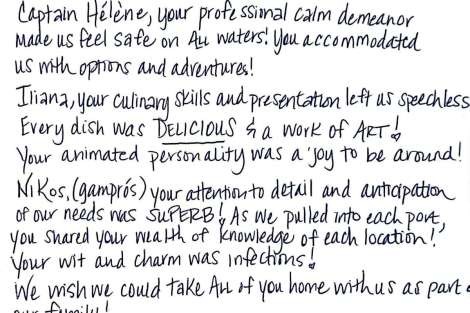 Captain Hélène, your professional calm demeanor
made us feel safe on ALL waters! You accommodated
us with options and adventures!
Iliana, your culinary skills and presentation left us speechless
Every dish was DELICIOUS & a work of ART!
Your animated personality was a joy to be around!
Nikos, (gamprós) your attention to detail and anticipation
of our needs was SUPERB! As we pulled into each port,
you shared your wealth of knowledge of each location!
Your wit and charm was infectios!
We wish we could take ALL of you home with us as part
our family!